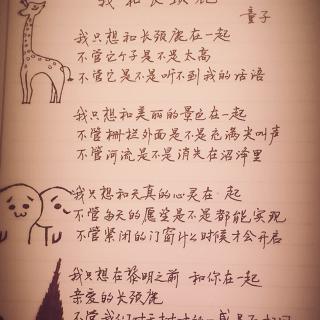 我和长颈鹿
童子
我只想和长颈鹿在一起
不管它个子是不是太高
不管它是不是听不到我的话语
我只想和美丽的景色在一起
不管栅栏外面是不是充满尖叫声
不管河流是不是消失在沼泽里
我只想和天真的心灵在一起
不管每天的愿望是不是都能实现
不管紧闭的门窗什么时候才会开启
我只想在黎明之前 和你在一起
亲爱的长颈鹿
不管我们